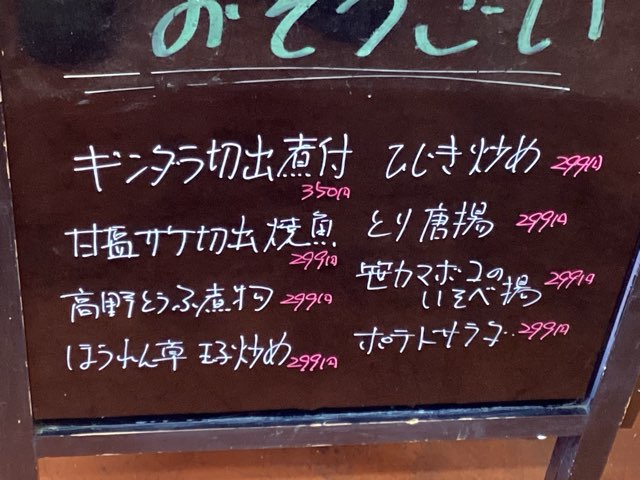 おそうざい
ギンダラ切出煮付
350円
甘塩サケ切出焼魚
299円
高野とうふ煮物 299円
ほうれん草玉子炒め 299円
ひじき炒め 299円
とり唐揚 299円
笹カマボコの
いそべ揚 299円
ポテトサラダ 299円